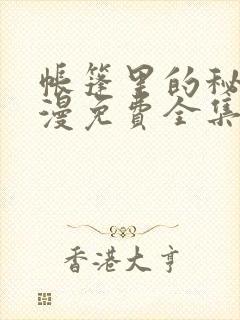 帐篷里的秘
漫免费全集
香港大亨